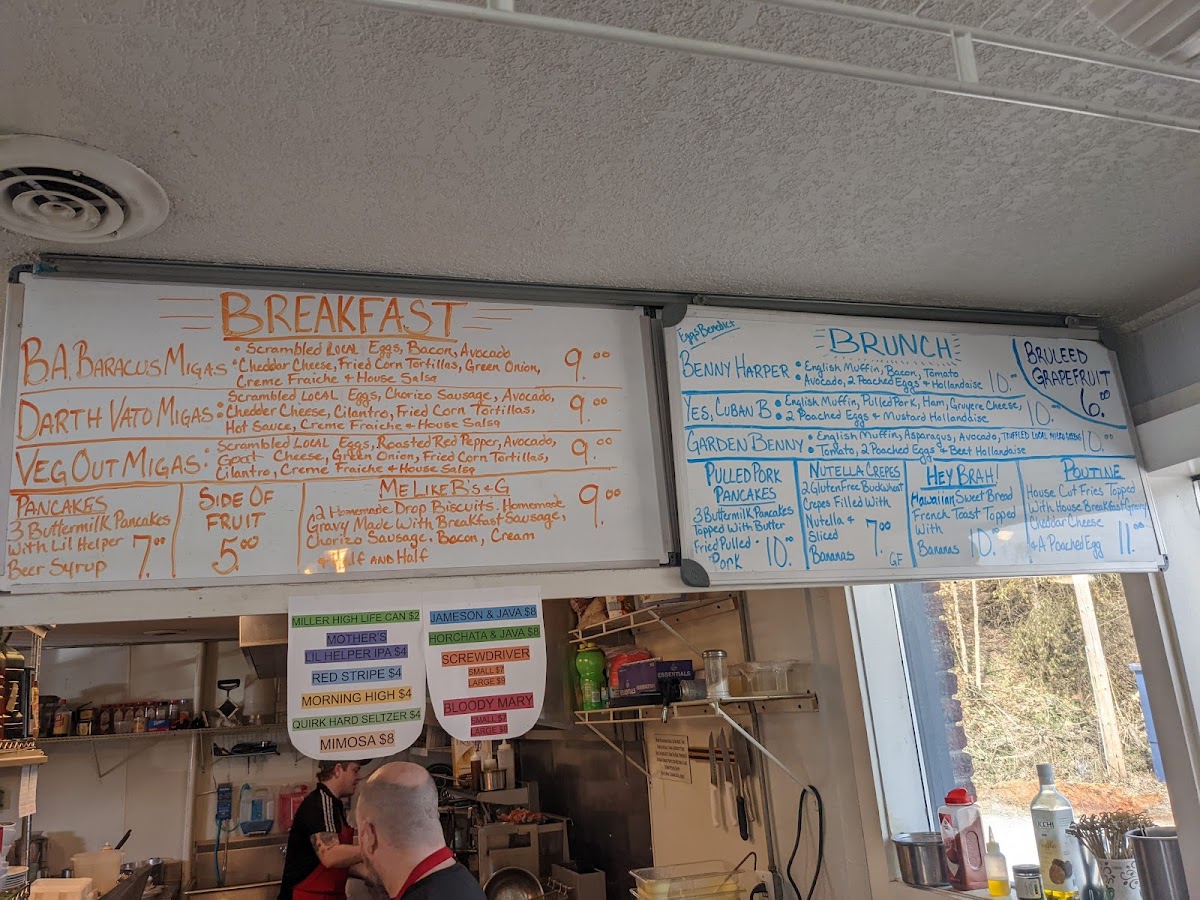 BREAKFAST
B.A. BARACUS MIGAS • Scrambled LOCAL Eggs, Bacon, Avocado
Cheddar Cheese, Fried Corn Tortillas, Green Onion,
Creme Fraiche & House Salsa
9.00
DARTH VATO MIGAS: Scrambled LOCAL Eggs, Chorizo Sausage, Avocado,
Chedder Cheese, Cilantro, Fried Corn Tortillas,
Hot Sauce, Creme Fraiche & House Salsa
9.00
VEG OUT MIGAS: Scrambled LOCAL Eggs, Roasted Red Pepper, Avocado,
Goat Cheese, Green Onion, Fried Corn Tortillas,
Cilantro, Creme Fraiche & House Salsa
9.00
PANCAKES
3 Buttermilk Pancakes
With Lil Helper
Beer Syrup
7.00
SIDE OF
FRUIT
5.00
ME LIKE B's & G
2 Homemade Drop Biscuits. Homemade
Gravy Made With Breakfast Sausage,
Chorizo Sausage. Bacon, Cream
& Half and Half
9.00
Eggs Benedict
BRUNCH
BENNY HARPER • English Muffin, Bacon, Tomato
Avocado, 2 Poached Eggs & Hollandaise
10.00
YES, CUBAN B • English Muffin, Pulled Pork, Ham, Gruyere Cheese,
2 Poached Eggs & Mustard Hollandaise
10.00
GARDEN BENNY • English Muffin, Asparagus, Avocado, TRUFFLED LOCAL
Tomato, 2 Poached Eggs & Beet Hollandaise
10.00
BRULEED
GRAPEFRUIT
6.00
PULLED PORK
PANCAKES
3 Buttermilk Pancakes
Topped With Butter
Fried Pulled
Pork
10.00
NUTELLA CREPES
2 Gluten Free Buckwheat
Crepes Filled With
Nutella &
Sliced
Bananas
7.00
GF
HEY BRAH
Hawaiian Sweet Bread
French Toast Topped
With
Bananas
10.00
POUTINE
House Cut Fries Topped
With House Breakfast Gravy
Cheddar Cheese
& A Poached Egg
11.00
MILLER HIGH LIFE CAN $2
MOTHER'S
LIL HELPER IPA $4
RED STRIPE $4
MORNING HIGH $4
QUIRK HARD SELTZER $4
MIMOSA $8
JAMESON & JAVA $8
HORCHATA & JAVA $8
SCREWDRIVER
SMALL $7
LARGE $9
BLOODY MARY
SMALL $7
LARGE
ESSENTIALS